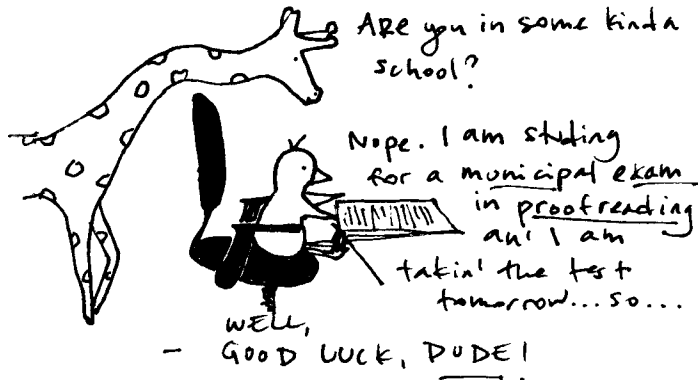 Are you in some kinda
school?
Nope. I am studing
for a municipal exam
in proofreading
an' I am
takin' the test
tomorrow...so...
WELL,
- GOOD LUCK, DUDE!